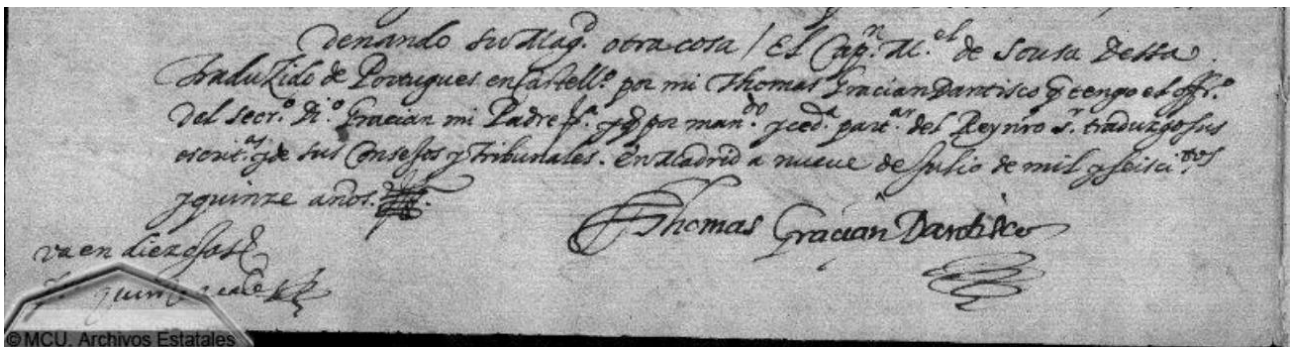 denando su Mag.d otra cosa / El Cap.n M.el de Sousa Dessa.
Traduzido de Portugues en Castell.o por mi Thomas Gracian Dantisco q tengo el off.o
del secr.o Di.o Gracian mi Padre y q por man.do y ced.a part.ar del Rey nro s.r traduzgo sus
escrit.as y de sus Consejos y Tribunales. En Madrid a nueve de Julio de mil y seisci.tos
y quinze años.
Thomas Gracian Dantisco
va en diez
© MCU. Archivos Estatales